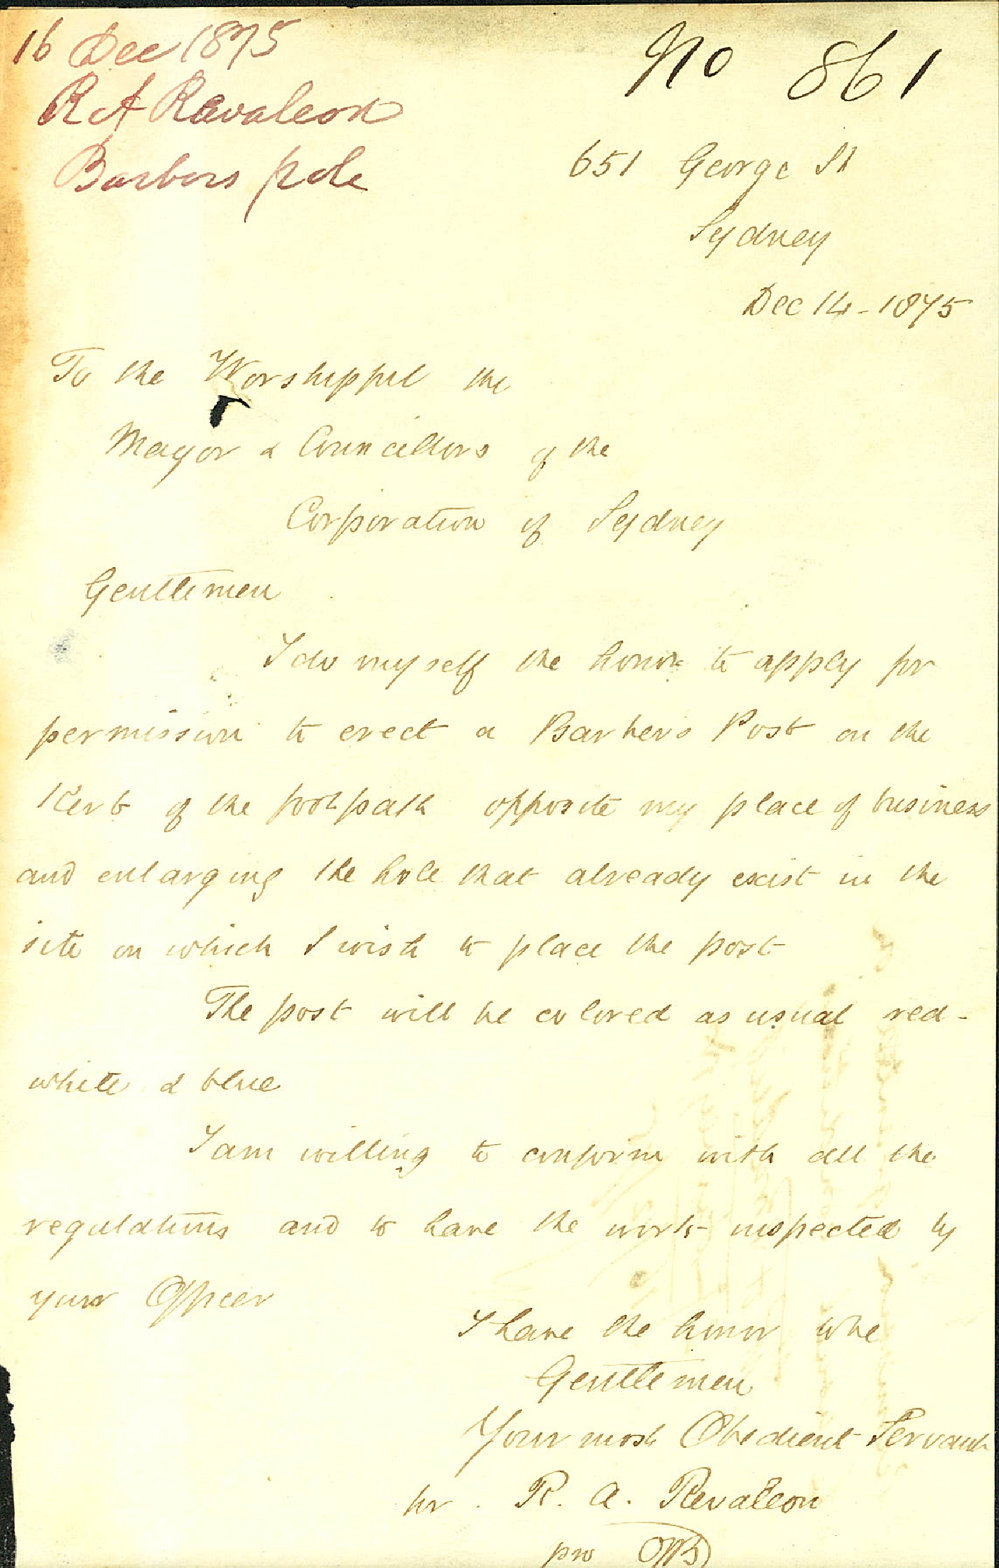 16 Dec 1875
R A Revaleon
Barbers pole
No 861
651 George St
Sydney
Dec 14 - 1875
To the Worshipful the
Mayor & Councillors of the
Corporation of Sydney
Gentlemen
I do myself the honor to apply for
permission to erect a Barbers Post on the
Kerb of the footpath opposite my place of business
and enlarging the hole that already exist in the
site on which I wish to place the post
The post will be colored as usual red -
white & blue
I am willing to conform with all the
regulations and to have the work inspected by
your Officer
I have the honor to be
Gentlemen
Your most Obedient Servant
for R. A. Revaleon
pro